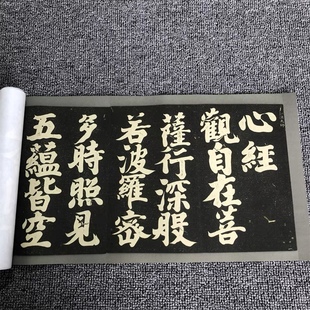 心經
觀自在菩
薩行深般
若波羅蜜
多時照見
五蘊皆空